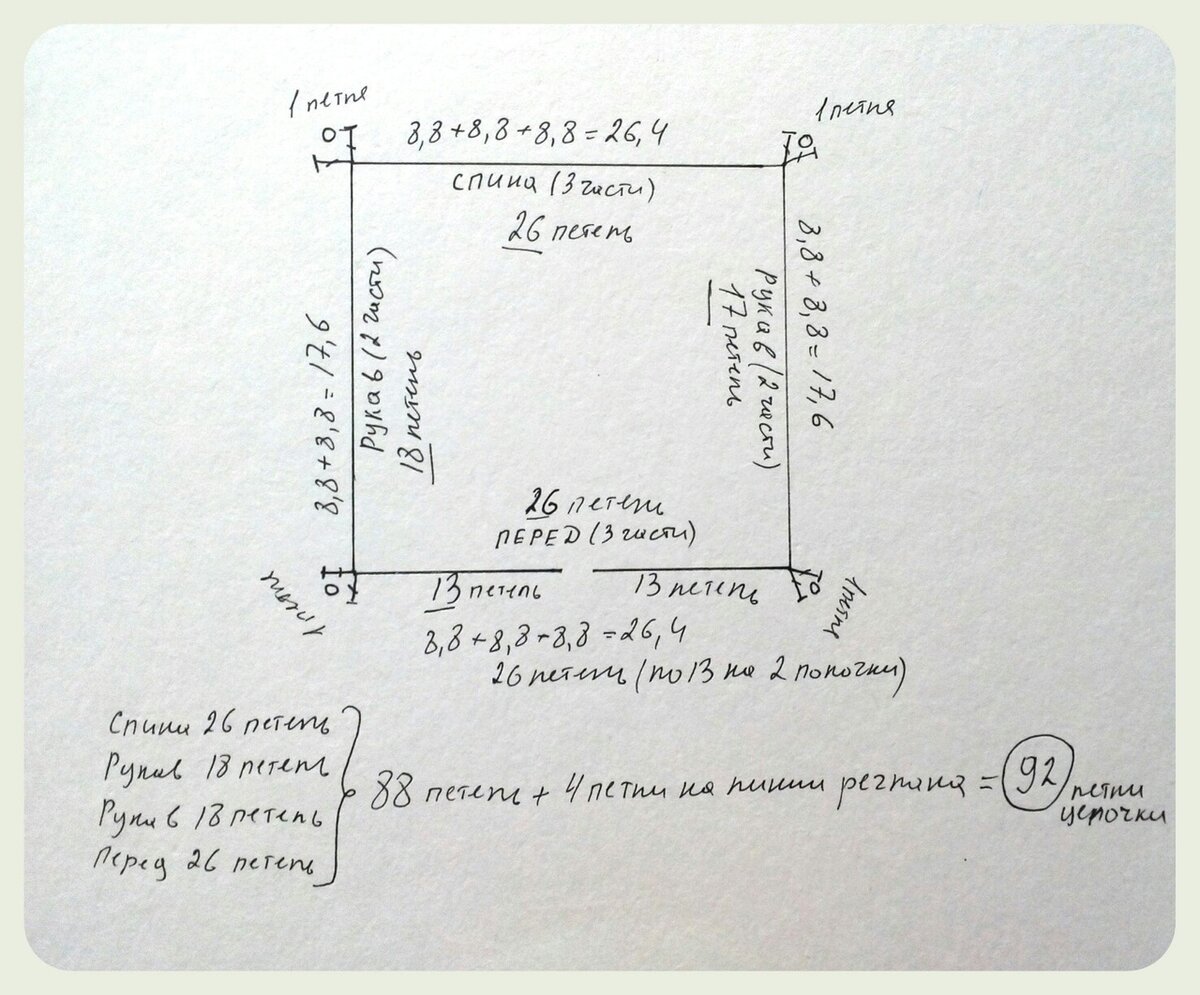 1 петля
1 петля
8,8+8,8+8,8=26,4
спина (3 части)
26 петель
8,8+8,8=17,6
Рукав (2 части)
18 петель
8,8+8,8=17,6
Рукав (2 части)
17 петель
26 петель
ПЕРЕД (3 части)
13 петель
13 петель
1 петля
1 петля
8,8+8,8+8,8=26,4
26 петель (по 13 на 2 полочки)
Спина 26 петель
Рукав 18 петель
Рукав 18 петель
Перед 26 петель
88 петель + 4 петли на линии реглана = 92 петли
цепочки